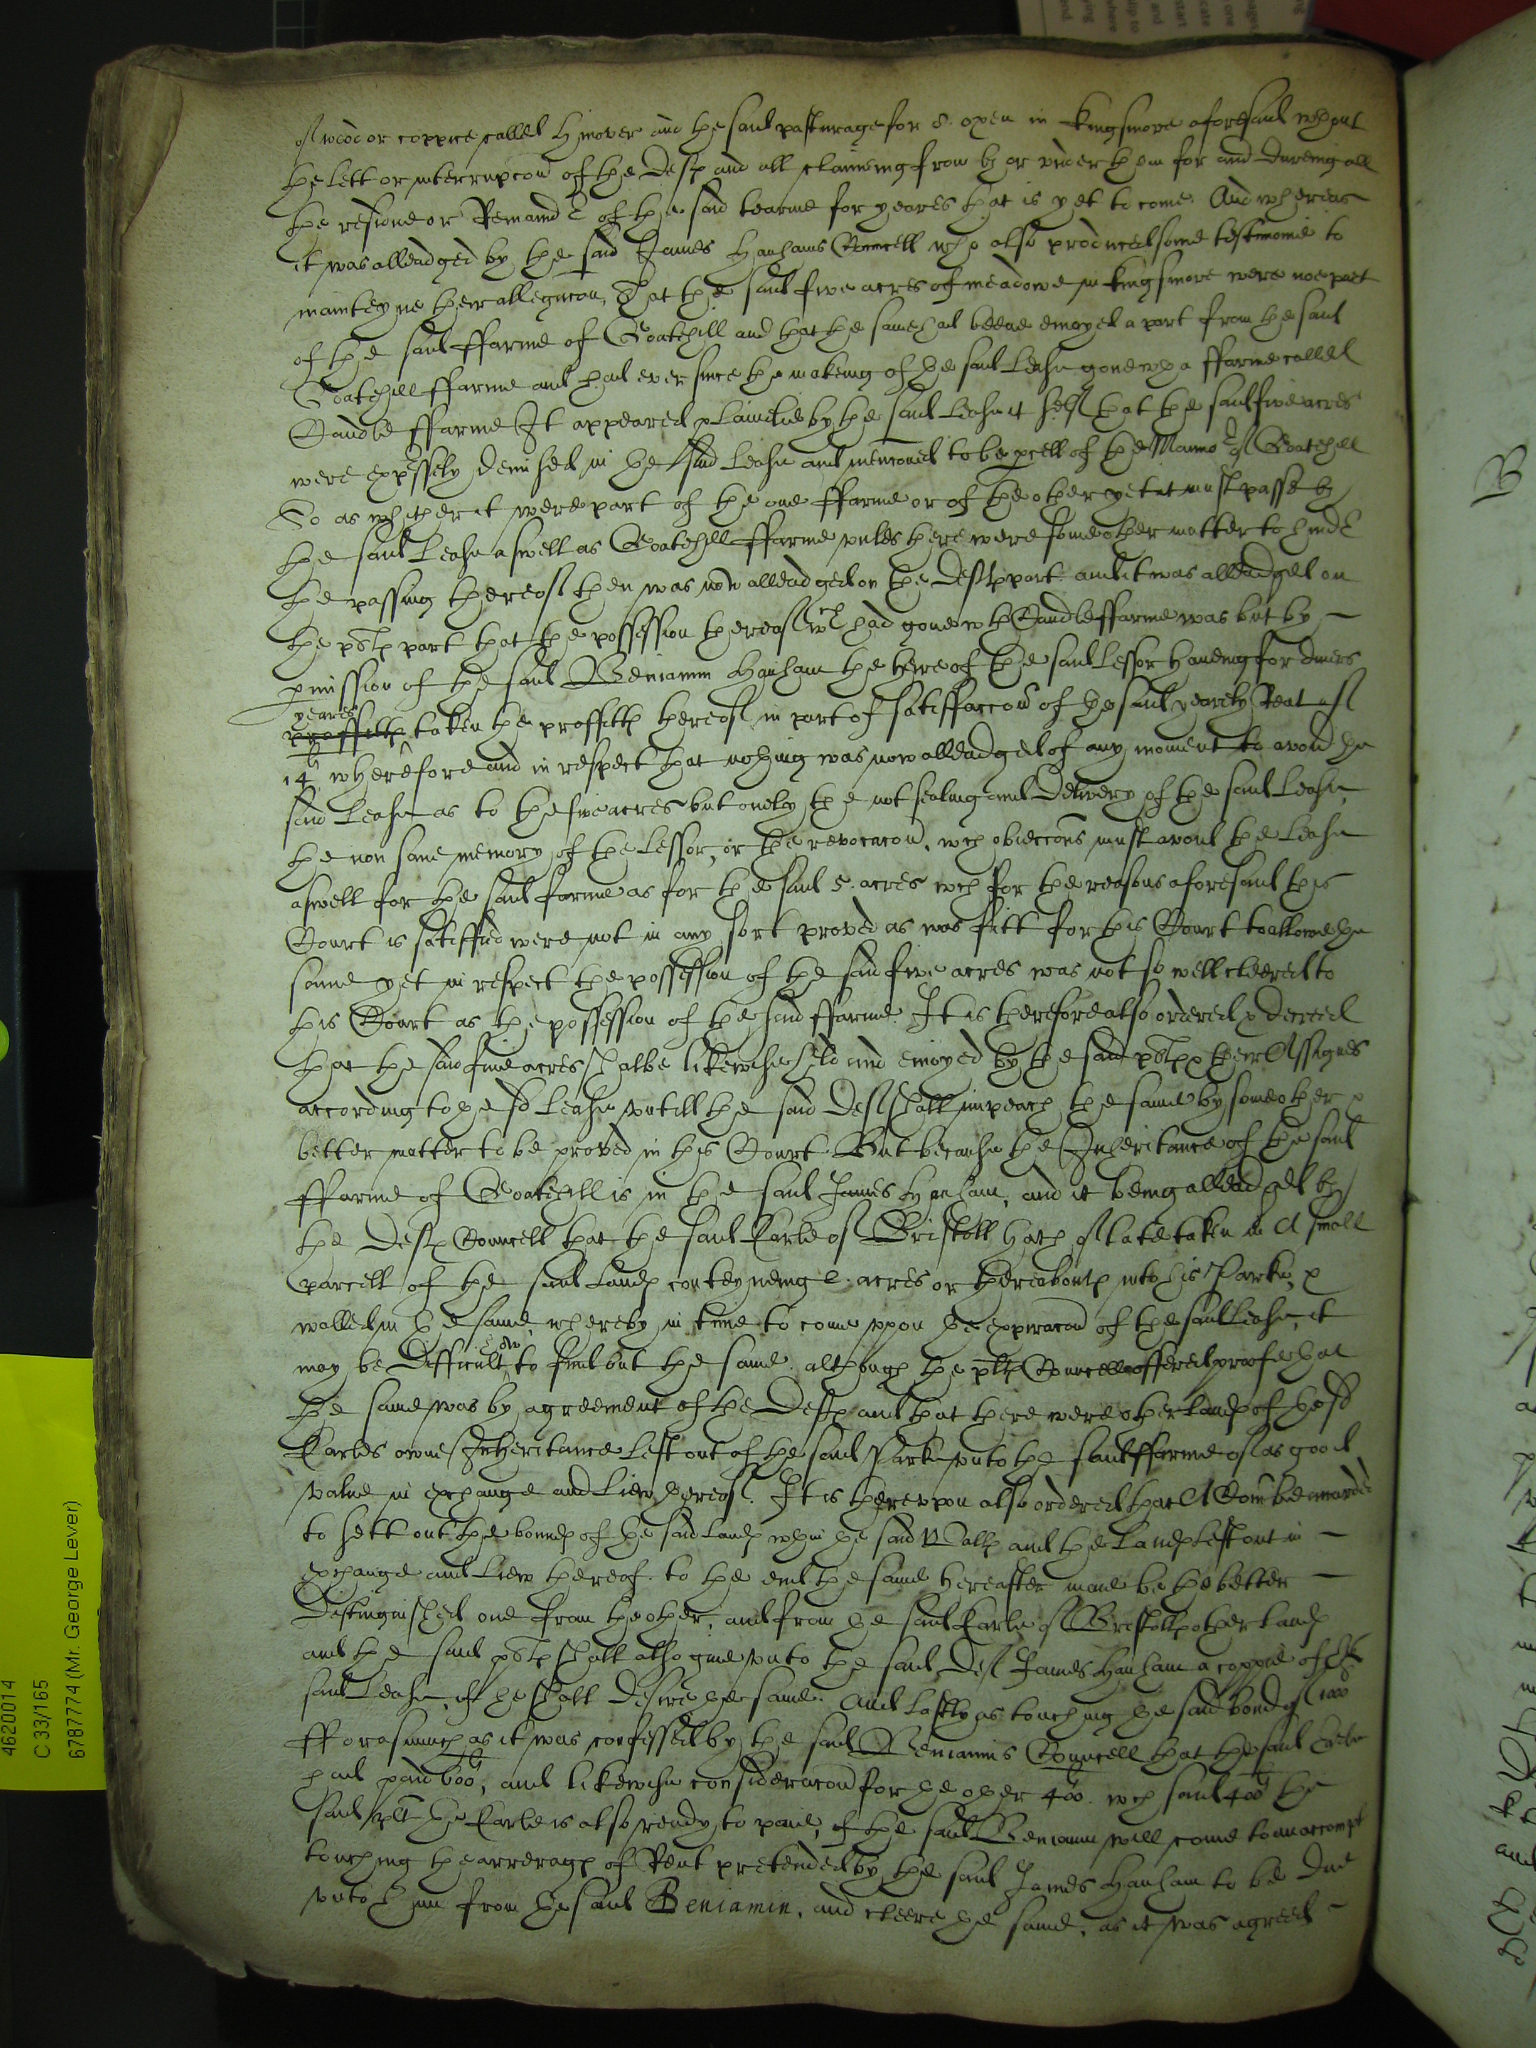 of wood or coppice called Hinover and the said pasturage for 8. oxen in Kingsmore aforesaid wthout
the lett or interrupcon of the Deftes and all claimeing from by or vnder them for and dureing all
the residue or Remaindr of the said tearme for yeares that is yet to come. And whereas
it was alleadged by the said James Hanhams Councell who also produced some testimonie to
mainteyne their allegacon, That the said five acres of meadowe in Kingsmore were noe part
of the said ffarme of Goatehill and that the same had beene enioyed a part from the said
Goatehill ffarme and had ever since the makeing of the said Lease gone wth a ffarme called
Caudle ffarme It appeared plainelie by the said Lease it self that the said five acres
were expressely demised in the said Lease and mencioned to be pcell of the Mannor of Goatehill
So as whether it were part of the one ffarme or of the other yet it must passe by
the said Lease aswell as Goatehill ffarme vnles there were some other matter to hindr
the passing thereof then was now alleadged on the Deftes part. and it was alleadged on
the pltes part that the possession thereof wch had gone wth Caudle ffarme was but by
pmission of the said Beniamin Hanham the heire of the said Lessor haueing for diuers
yeares
proffittes taken the proffittes thereof in part of satisfaccon of the said yearely Rent of
14li wherefore and in respect that nothing was now alleadged of any moment to avoid the
said Lease as to the five acres but onely the not sealing and Delivery of the said Lease,
the non sane memory of the Lessor, or the revocacon, wch obieccons must avoid the Lease
aswell for the said farme as for the said 5. acres wch for the reasons aforesaid this
Court is satisfied were not in any sort proved as was fitt for this Court to allowe the
same yet in respect the possession of the said five acres was not so well cleered to
this Court as the possession of the said ffarme. It is therefore also ordered & decreed
that the said five acres shalbe likewise held and enioyed by the said pltes & their Assignes
according to the sd Lease vntill the said Deft shall impeach the same by some other &
better matter to be proved in this Court. But because the Inheritance of the said
ffarme of Goatehill is in the said James Hanham, and it being alleadged by
the Deftes Councell that the said Earle of Bristoll hath of late taken in A small
parcell of the said Landes conteyneing acres or thereaboutes into his Parke, &
walled in the same, whereby in time to come vppon the expiracon of the said Lease, it
may be Difficult to find out the same. although the pltes Councell offered proofe that
the same was by agreement of the Deftes and that there were other Landes of the sd
Earles owne Inheritance left out of the said Parke vnto the said ffarme of as good
value in exchange and Liew thereof. It is therevpon also ordered that A Com̃ be awarded
to sett out the boundes of the said Landes wthin the said Walles and the Landes left out in
exchange and Liew thereof. to the end the same hereafter maie be the better
Distinguished one from the other, and from the said Earle of Bristolls other Landes
and the said pltes shall also giue vnto the said Deft James Hanham a coppie of the
said Lease, if he shall desire the same. And lastly as touching the said bond of 1000li
fforasmuch as it was confessed by the said Beniamins Councell that the said Earle
had paid 600li, and likewise consideracon for the other 400li. wch said 400li the
said plt the Earle is also ready to paie, if the said Beniamin will come to an accompt
touching the arrerages of Rent pretended by the said James Hanham to be due
vnto him from the said Beniamin, and cleere the same, as it was agreed
4620014
C 33/165
6787774 (Mr. George Lever)